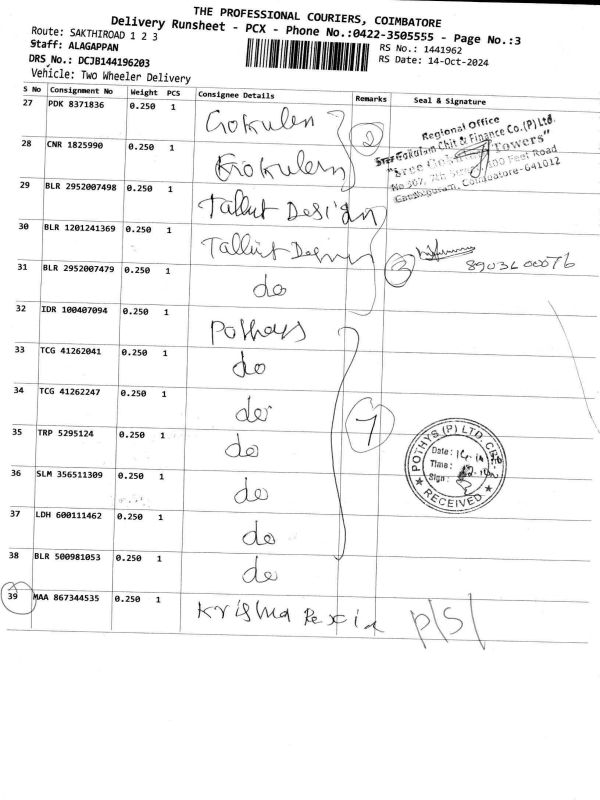 THE PROFESSIONAL COURIERS, COIMBATORE
Delivery Runsheet - PCX - Phone No.:0422-3505555 - Page No.:3
Route: SAKTHIROAD 1 2 3
RS No.: 1441962
Staff: ALAGAPPAN
RS Date: 14-Oct-2024
DRS No.: DCJB144196203
Vehicle: Two Wheeler Delivery
S No Consignment No Weight PCS Consignee Details Remarks Seal & Signature
27 PDK 8371836 0.250 1 Gokulen 2
Regional Office
Sree Gokulam Chit & Finance Co.(P) Ltd.
"Sree Gokulam Towers"
No 307, 7th Street, 100 Feet Road
Gandhipuram, Coimbatore-641012
28 CNR 1825990 0.250 1 Gokulen
29 BLR 2952007498 0.250 1 Tallut Design
30 BLR 1201241369 0.250 1 Tallut Design 3
8903600076
31 BLR 2952007479 0.250 1 do
32 IDR 100407094 0.250 1 Pothys
33 TCG 41262041 0.250 1 do
34 TCG 41262247 0.250 1 do 7
35 TRP 5295124 0.250 1 do
POTHYS (P) LTD. CBE-2
Date: 14
Time:
Sign:
RECEIVED
36 SLM 356511309 0.250 1 do
37 LDH 600111462 0.250 1 do
38 BLR 500981053 0.250 1 do
39 MAA 867344535 0.250 1 Krishna P/S/